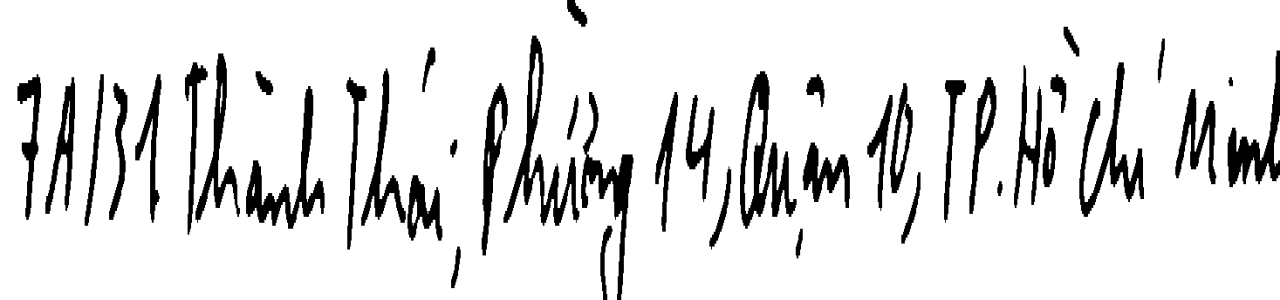 7A/31 Thành Thái, Phường 14, Quận 10, TP. Hồ Chí Minh